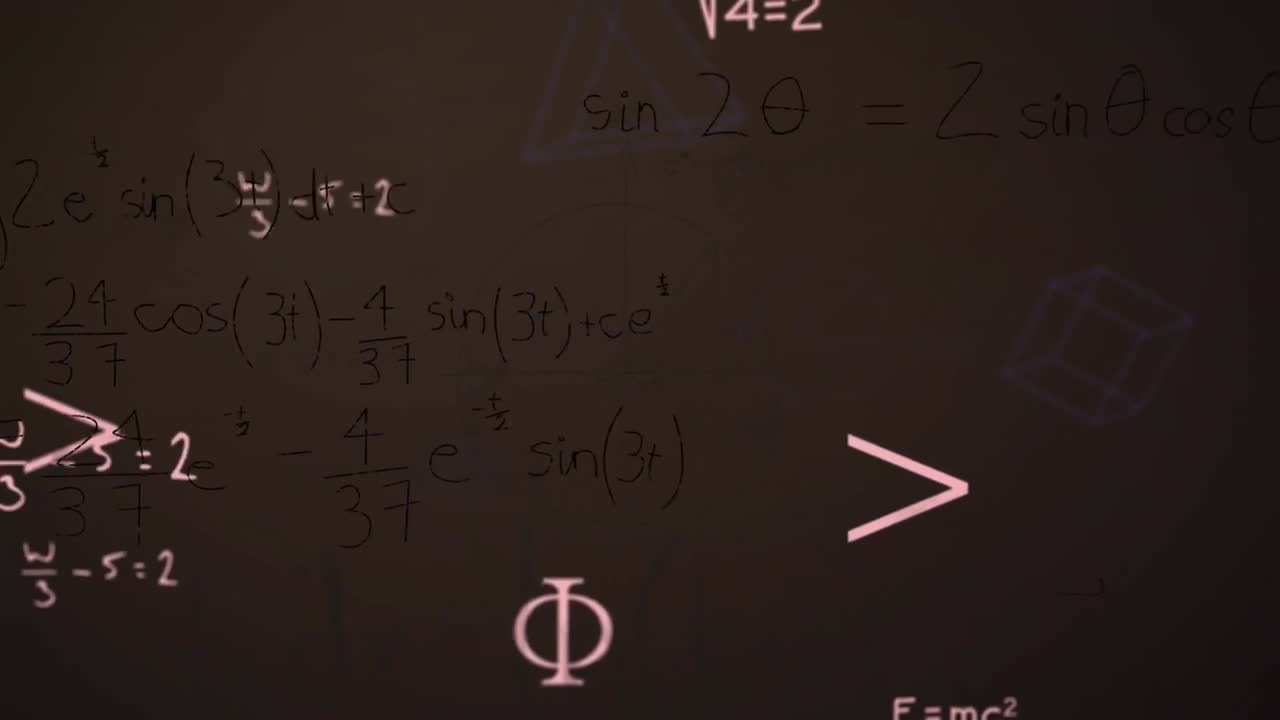 √4=2
sin 2θ = 2 sinθ cosθ
2e^½ sin(3t) dt + c
w/3 - 5 = 2
- 24/37 cos(3t) - 4/37 sin(3t) + ce^(t/2)
>
w/3 - 5 = 2
24/37 e^(-t/2) - 4/37 e^(-t/2) sin(3t)
>
w/3 - 5 = 2
Φ
E=mc²